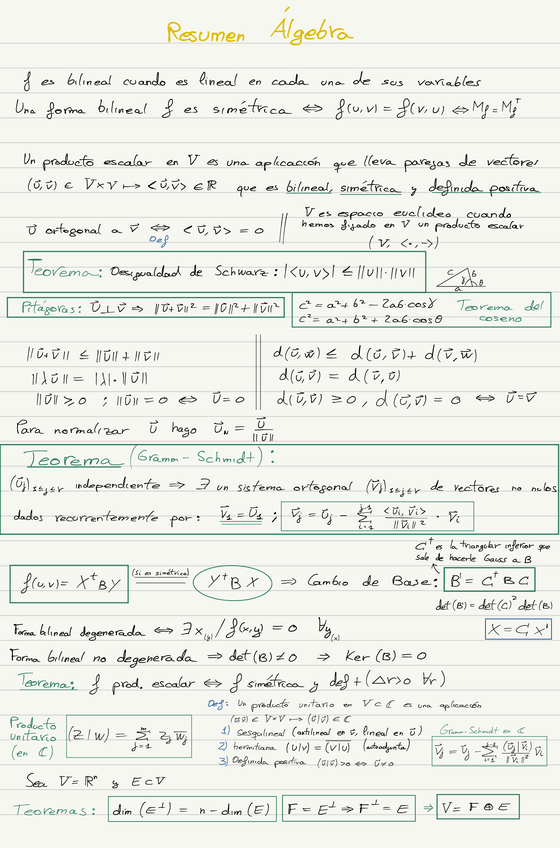 Resumen Álgebra
f es bilineal cuando es lineal en cada una de sus variables
Una forma bilineal f es simétrica ⇔ f(u,v) = f(v,u) ⇔ M_f = M_f^t
Un producto escalar en V es una aplicación que lleva parejas de vectores
(ū,v̄) ∈ V×V ↦ <ū,v̄> ∈ ℝ que es bilineal, simétrica y definida positiva
ū ortogonal a v̄ ⇔ <ū,v̄> = 0
Def
V es espacio euclideo cuando
hemos fijado en V un producto escalar
(V, <·,·>)
Teorema: Desigualdad de Schwarz: |<u,v>| ≤ ||u||·||v||
c b γ θ a
Pitágoras: ū⊥v̄ ⇒ ||ū+v̄||² = ||ū||² + ||v̄||²
c² = a² + b² - 2ab·cosγ
c² = a² + b² + 2ab·cosθ
Teorema del
coseno
||ū+v̄|| ≤ ||ū|| + ||v̄||
||λū|| = |λ|·||ū||
||ū|| ≥ 0 ; ||ū|| = 0 ⇔ ū=0
d(ū,w̄) ≤ d(ū,v̄) + d(v̄,w̄)
d(ū,v̄) = d(v̄,ū)
d(ū,v̄) ≥ 0, d(ū,v̄) = 0 ⇔ ū=v̄
Para normalizar ū hago ū_N = ū/||ū||
Teorema (Gramm-Schmidt):
(ū_j)_{1≤j≤r} independiente ⇒ ∃ un sistema ortogonal (v̄_j)_{1≤j≤r} de vectores no nulos
dados recurrentemente por: v̄_1 = ū_1 ; v̄_j = ū_j - Σ_{i=1}^{j-1} <ū_j, v̄_i>/||v̄_i||² · v̄_i
C^t es la triangular inferior que
sale de hacerle Gauss a B
f(u,v) = X^t B Y (Si es simétrica) Y^t B X ⇒ Cambio de Base: B' = C^t B C
det(B') = det(C)² det(B)
Forma bilineal degenerada ⇔ ∃x_(y) / f(x,y) = 0 ∀y_(x)
X = C X'
Forma bilineal no degenerada ⇒ det(B) ≠ 0 ⇒ Ker(B) = 0
Teorema: f prod. escalar ⇔ f simétrica y def + (Δr>0 ∀r)
Producto
unitario
(en ℂ)
(z|w) = Σ_{j=1}^{n} z_j w̄_j
Def: Un producto unitario en V⊂ℂ es una aplicación
(ū,v̄) ∈ V×V ↦ (ū|v̄) ∈ ℂ
1) Sesquilineal (antilineal en v̄, lineal en ū)
2) hermitiana (u|v) = (v|u) (autoadjunta)
3) Definida positiva (ū|ū)>0 ⇔ ū≠0
Gramm-Schmidt en ℂ
v̄_j = ū_j - Σ_{i=1}^{j-1} (ū_j|v̄_i)/||v̄_i||² v̄_i
Sea V = ℝⁿ y E⊂V
Teoremas: dim(E^⊥) = n - dim(E) F = E^⊥ ⇒ F^⊥ = E ⇒ V = F ⊕ E